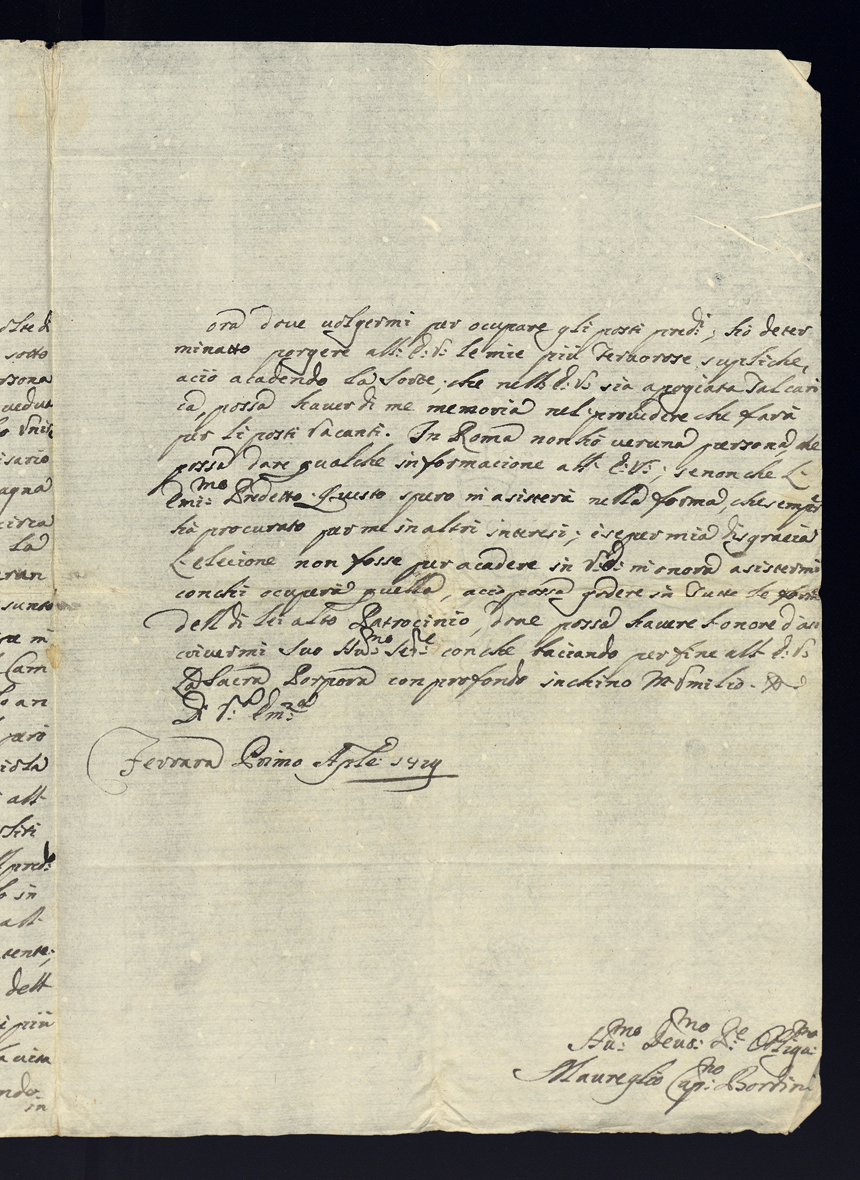 ora dove uolgermi per ocupare gli posti pred:i, hò deter
minatto porgere all: E: V: le mie più fervorose supliche,
aciò acadendo La Sorte, che nell E: V: sia apogiata tal cari
ca, possa haver di me memoria nel provedere che farà
per li posti vacanti. In Roma non hò veruna persona, che
possa dare qualche informacione all: E: V:; se non che L:
Emi:mo Predetto. Questo spero m asisterà nella forma, che sempre
hà procurato per me in altri interesi; e se per mia disgracia
L elecione non fosse per acadere in V: E: m onora asistermi
con chi ocuperà quella, acciò possa godere in tutte le forme
dell di lei alto Patrocinio, dove possa havere l onore d as
crivermi Suo Hu:mo Ser:e con che baciando per fine all E: V:
La Sacra Porpora con profondo inchino M Umilio.
Di V:a Em:za
Ferrara Primo Aple: 1719
Hu:mo Deuo:mo Se:e Obliga:mo
Maureglio Cap:no Bordini
olte di
sotto
rsona
vedut
o Unit
isario
agna
circa
La
sunto
m
Cam
o an
pari
all
pred:
o in
all
sente;
dell
i più
a vita
ndo
in